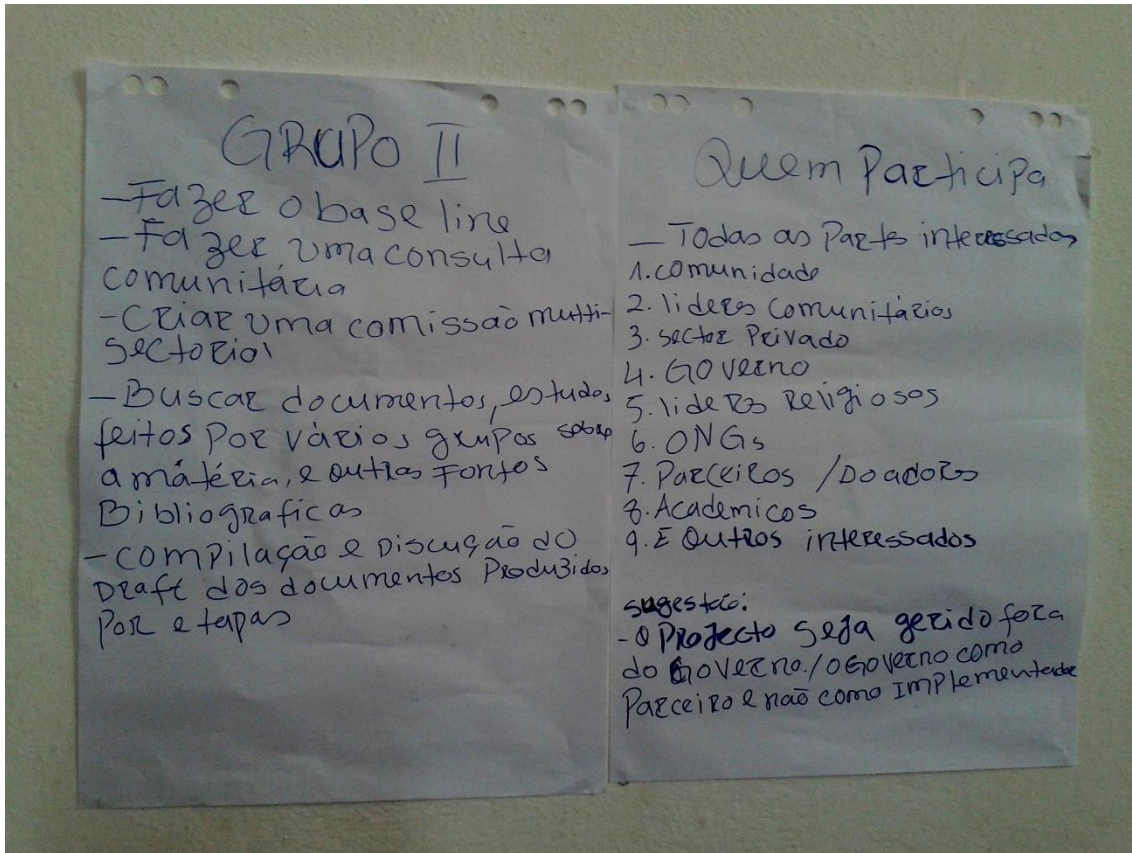 GRUPO II
- Fazer o base line
- Fazer uma consulta
comunitária
- Criar uma comissão multi-
sectorial
- Buscar documentos, estudos
feitos por vários grupos sobre
a matéria, e outras Fontes
Bibliograficas
- Compilação e Discução do
Draft dos documentos Produzidos
Por etapas
Quem Participa
- Todas as Partes interessadas
1. comunidade
2. lideres comunitários
3. sector Privado
4. Governo
5. lideres Religiosos
6. ONGs
7. Parceiros / Doadores
8. Academicos
9. E Outros interessados
sugestão:
- O Projecto seja gerido fora
do Governo. / o Governo como
Parceiro e não como Implementador